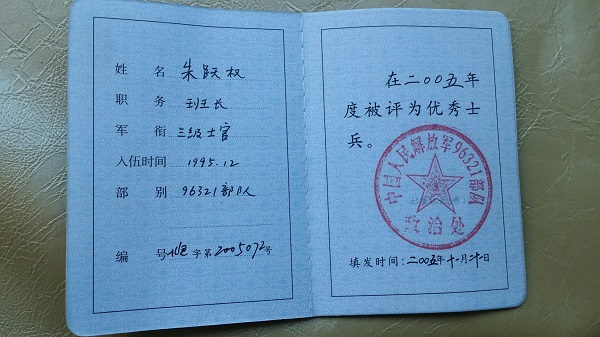 姓 名 朱跃权
职 务 班长
军 衔 三级士官
入伍时间 1995.12
部 别 96321部队
编 号 字第2005072号
在二00五年
度被评为优秀士
兵。
中国人民解放军96321部队
政治处
填发时间:二00五年十一月二十日